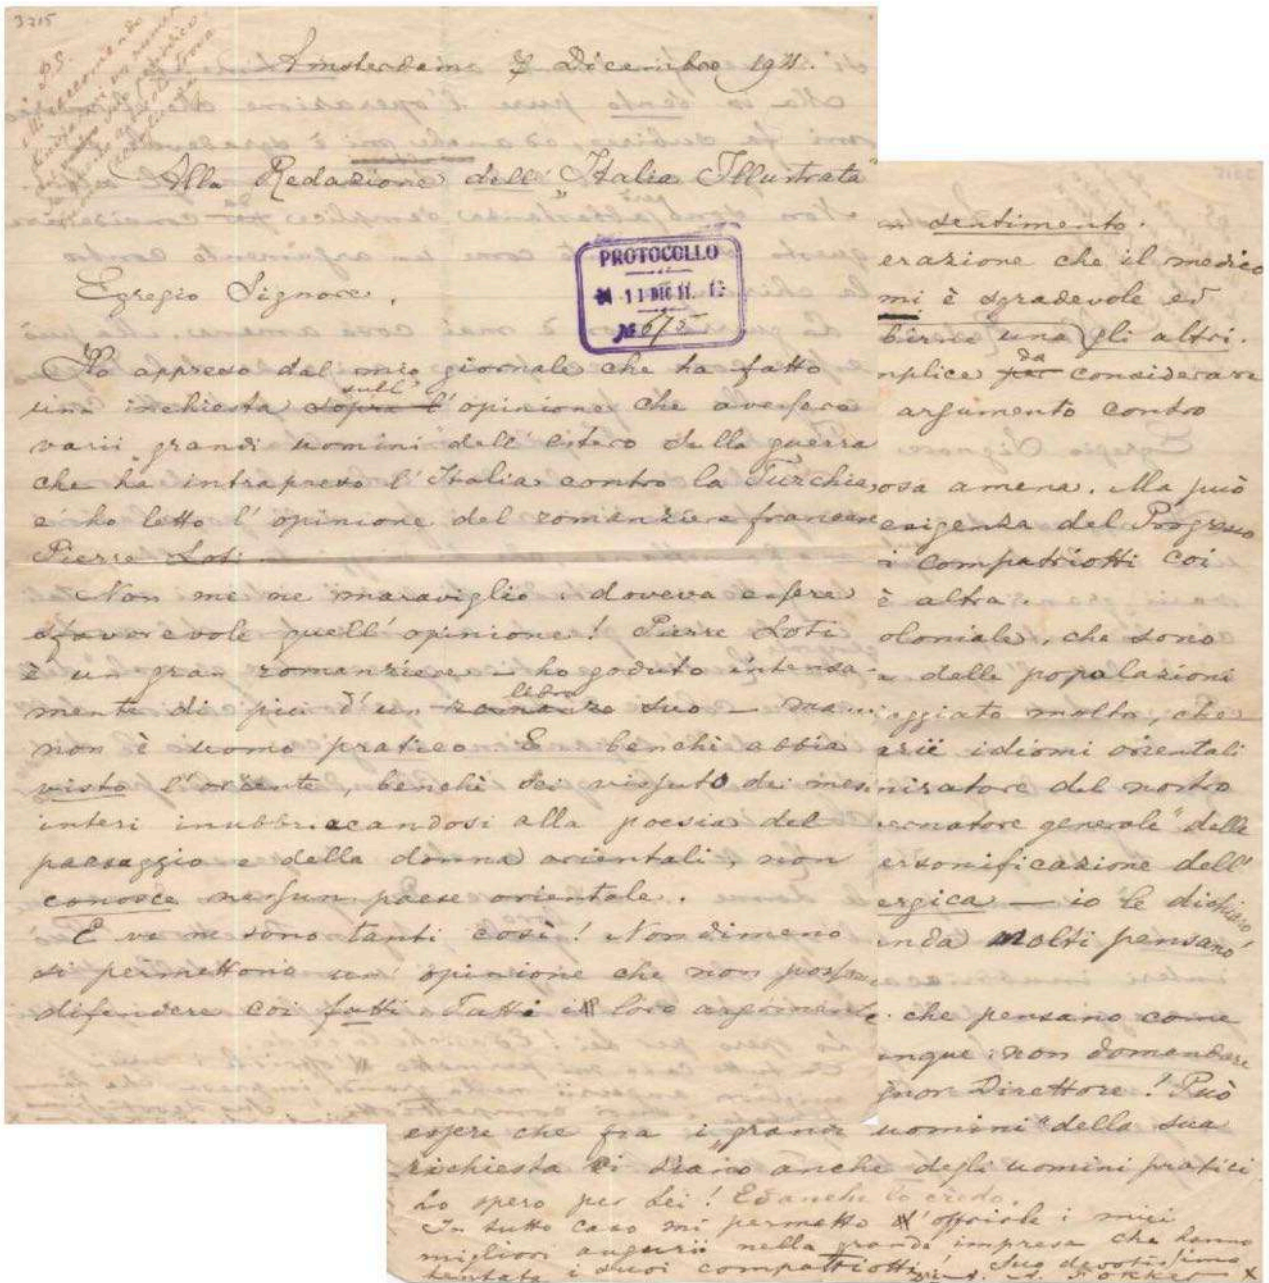 3215
P.S.
Mi raccomando
Amsterdam 7 Dicembre 1911.
Alla Redazione dell' "Italia Illustrata"
PROTOCOLLO
11 DIC 11
No 675
Egregio Signore,
Ho appreso dal mio giornale che ha fatto
una inchiesta sopra l' sull' opinione che avessero
varii "grandi uomini" dell' estero sulla guerra
che ha intrapreso l'Italia contro la Turchia,
e ho letto l'opinione del romanziere francese
Pierre Loti.
Non me ne maraviglio: doveva essere
sfavorevole quell' opinione! Pierre Loti
è un gran romanziere — ho goduto intensa-
mente di più d'un romanzo libro suo — ma
non è uomo pratico. E benchè abbia
visto l'oriente, benchè sei vissuto dei mesi
interi inubbriacandosi alla poesia del
paesaggio e della donna orientali, non
conosce nessun paese orientale.
E ve ne sono tanti così! Nondimeno
si permettono un' opinione che non possono
difendere coi fatti. Tutti i loro argomenti
sentimento.
erazione che il medico
mi è sgradevole ed
birne una gli altri.
mplice per da considerare
argumento contro
osa amena. Ma può
esigenza del Progresso
i compatriotti coi
è altra.
oloniale, che sono
e delle popolazioni
iaggiato molto, che
arii idiomi orientali
miratore del nostro
ernatore generale" delle
ersonificazione dell'
ergica — io le dichiaro
anda molti pensano
che pensano come
unque: non domandare
gnor Direttore! Può
essere che fra i "grandi uomini" della sua
richiesta ci siano anche degli uomini pratici
Lo spero per Lei! Ed anche lo credo.
In tutto caso mi permetto d'offrirle i miei
migliori augurii nella grande impresa che hanno
tentata i suoi compatriotti! Suo devotissimo